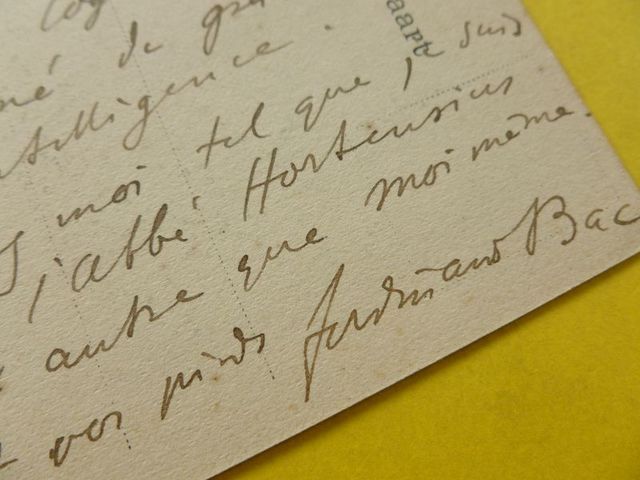 né de
intelligence.
moi tel que je suis
l'abbé Hortensius
autre que moi même.
vos pieds Ferdinand Bac
aart